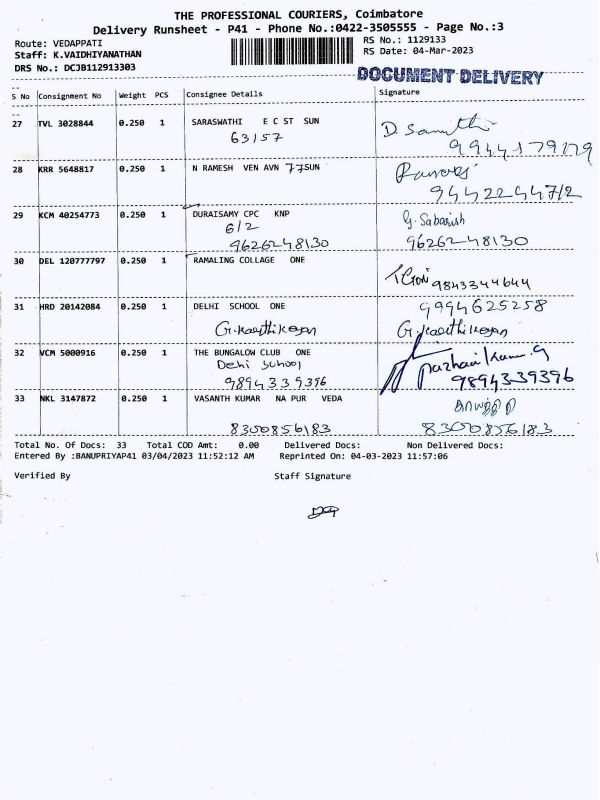 THE PROFESSIONAL COURIERS, Coimbatore
Delivery Runsheet - P41 - Phone No.:0422-3505555 - Page No.:3
Route: VEDAPPATI RS No.: 1129133
Staff: K.VAIDHIYANATHAN RS Date: 04-Mar-2023
DRS No.: DCJB112913303
DOCUMENT DELIVERY
S No Consignment No Weight PCS Consignee Details Signature
27 TVL 3028844 0.250 1 SARASWATHI E C ST SUN
63157
28 KRR 5648817 0.250 1 N RAMESH VEN AVN 77 SUN
9442224712
29 KCM 40254773 0.250 1 DURAISAMY CPC KNP G. Sabarish
6/2
9626248130 9626248130
30 DEL 120777797 0.250 1 RAMALING COLLAGE ONE
9843344644
31 HRD 20142084 0.250 1 DELHI SCHOOL ONE 9994625258
G.Karthikeyan G.Karthikeyan
32 VCM 5000916 0.250 1 THE BUNGALOW CLUB ONE
Delhi School
9894339396 9894339396
33 NKL 3147872 0.250 1 VASANTH KUMAR NA PUR VEDA காயத்திரி
8300856183 8300856183
Total No. Of Docs: 33 Total COD Amt: 0.00 Delivered Docs: Non Delivered Docs:
Entered By :BANUPRIYAP41 03/04/2023 11:52:12 AM Reprinted On: 04-03-2023 11:57:06
Verified By Staff Signature